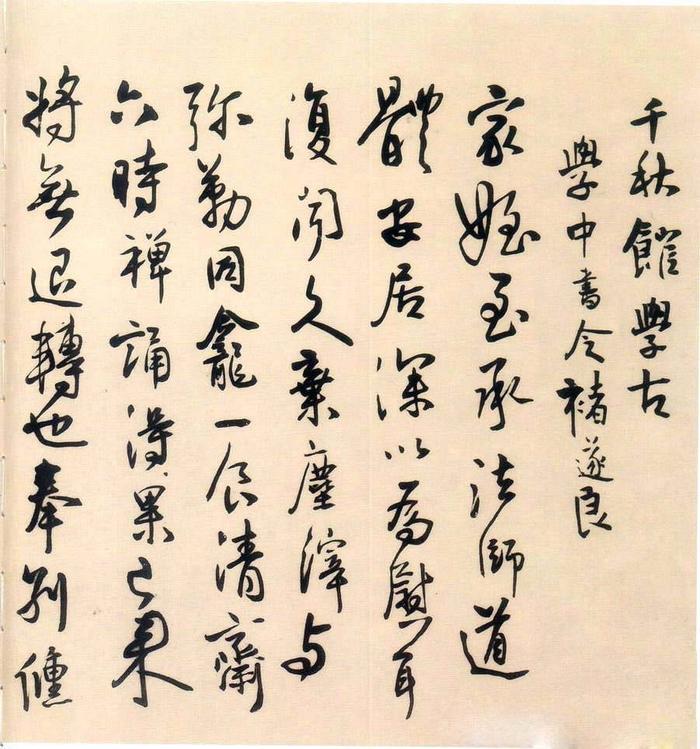 千秋館學古
學中書令褚遂良
家姪至承法師道
體安居深以為慰耳
復聞久棄塵滓与
弥勒同龕一食清齋
六時禪誦得果已来
將無退轉也奉別儵